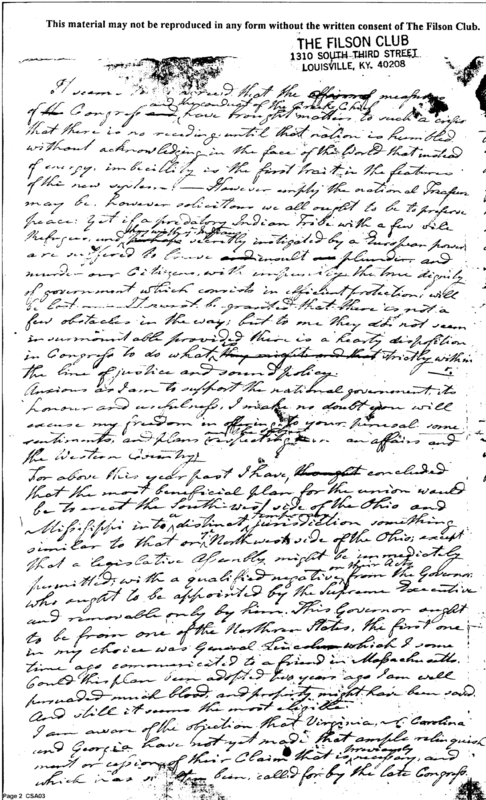 This material may not be reproduced in any form without the written consent of The Filson Club.
THE FILSON CLUB
1310 SOUTH THIRD STREET
LOUISVILLE, KY. 40208
It seems agreed that the measures
of the Congress and the conduct of the Creek Chief have brought matters to such a crisis
that there is no receding until that nation is humbled
without acknowledging in the face of the World that instead
of energy, imbecillity is the first trait in the features
of the new system. — However empty the national Treasury
may be, however solicitous we all ought to be to preserve
peace: yet if a predatory Indian Tribe with a few vile
Refugees, and secretly instigated by a European power
are suffered to insult plunder and
murder our Citizens, with impunity the true dignity
of government which consists in efficient protection, will
be lost — It must be granted that there is not a
few obstacles in the way, but to me they do not seem
insurmountable provided there is a hearty disposition
in Congress to do what strictly within
the line of justice and sound policy.
Anxious as I am to support the national government, its
honour and usefulness, I make no doubt you will
excuse my freedom in offering to your perusal some
sentiments, and plans respecting an affairs and
the Western Country
For above this year past I have, thought concluded
that the most beneficial plan for the union would
be to erect the Southwest side of the Ohio and
Mississippi into a distinct jurisdiction something
similar to that on the Northwest side of the Ohio; except
that a legislative Assembly might be immediately
permitted, with a qualified negative on their Acts from the Governor
who ought to be appointed by the Supreme Executive
and removable only by him. This Governor ought
to be from one of the Northern States, the first one
in my choice was General Lincoln which I some
time ago communicated to a friend in Massachusetts.
Could this plan been adopted two years ago I am well
persuaded much blood and property might have been saved
And still it seems the most eligible
I am aware of the objection that Virginia, N Carolina
and Georgia have not yet made that ample relinquish
ment or cession of their Claim that is necessary, and
which has been called for by the late Congress.
Page 2 CSA03